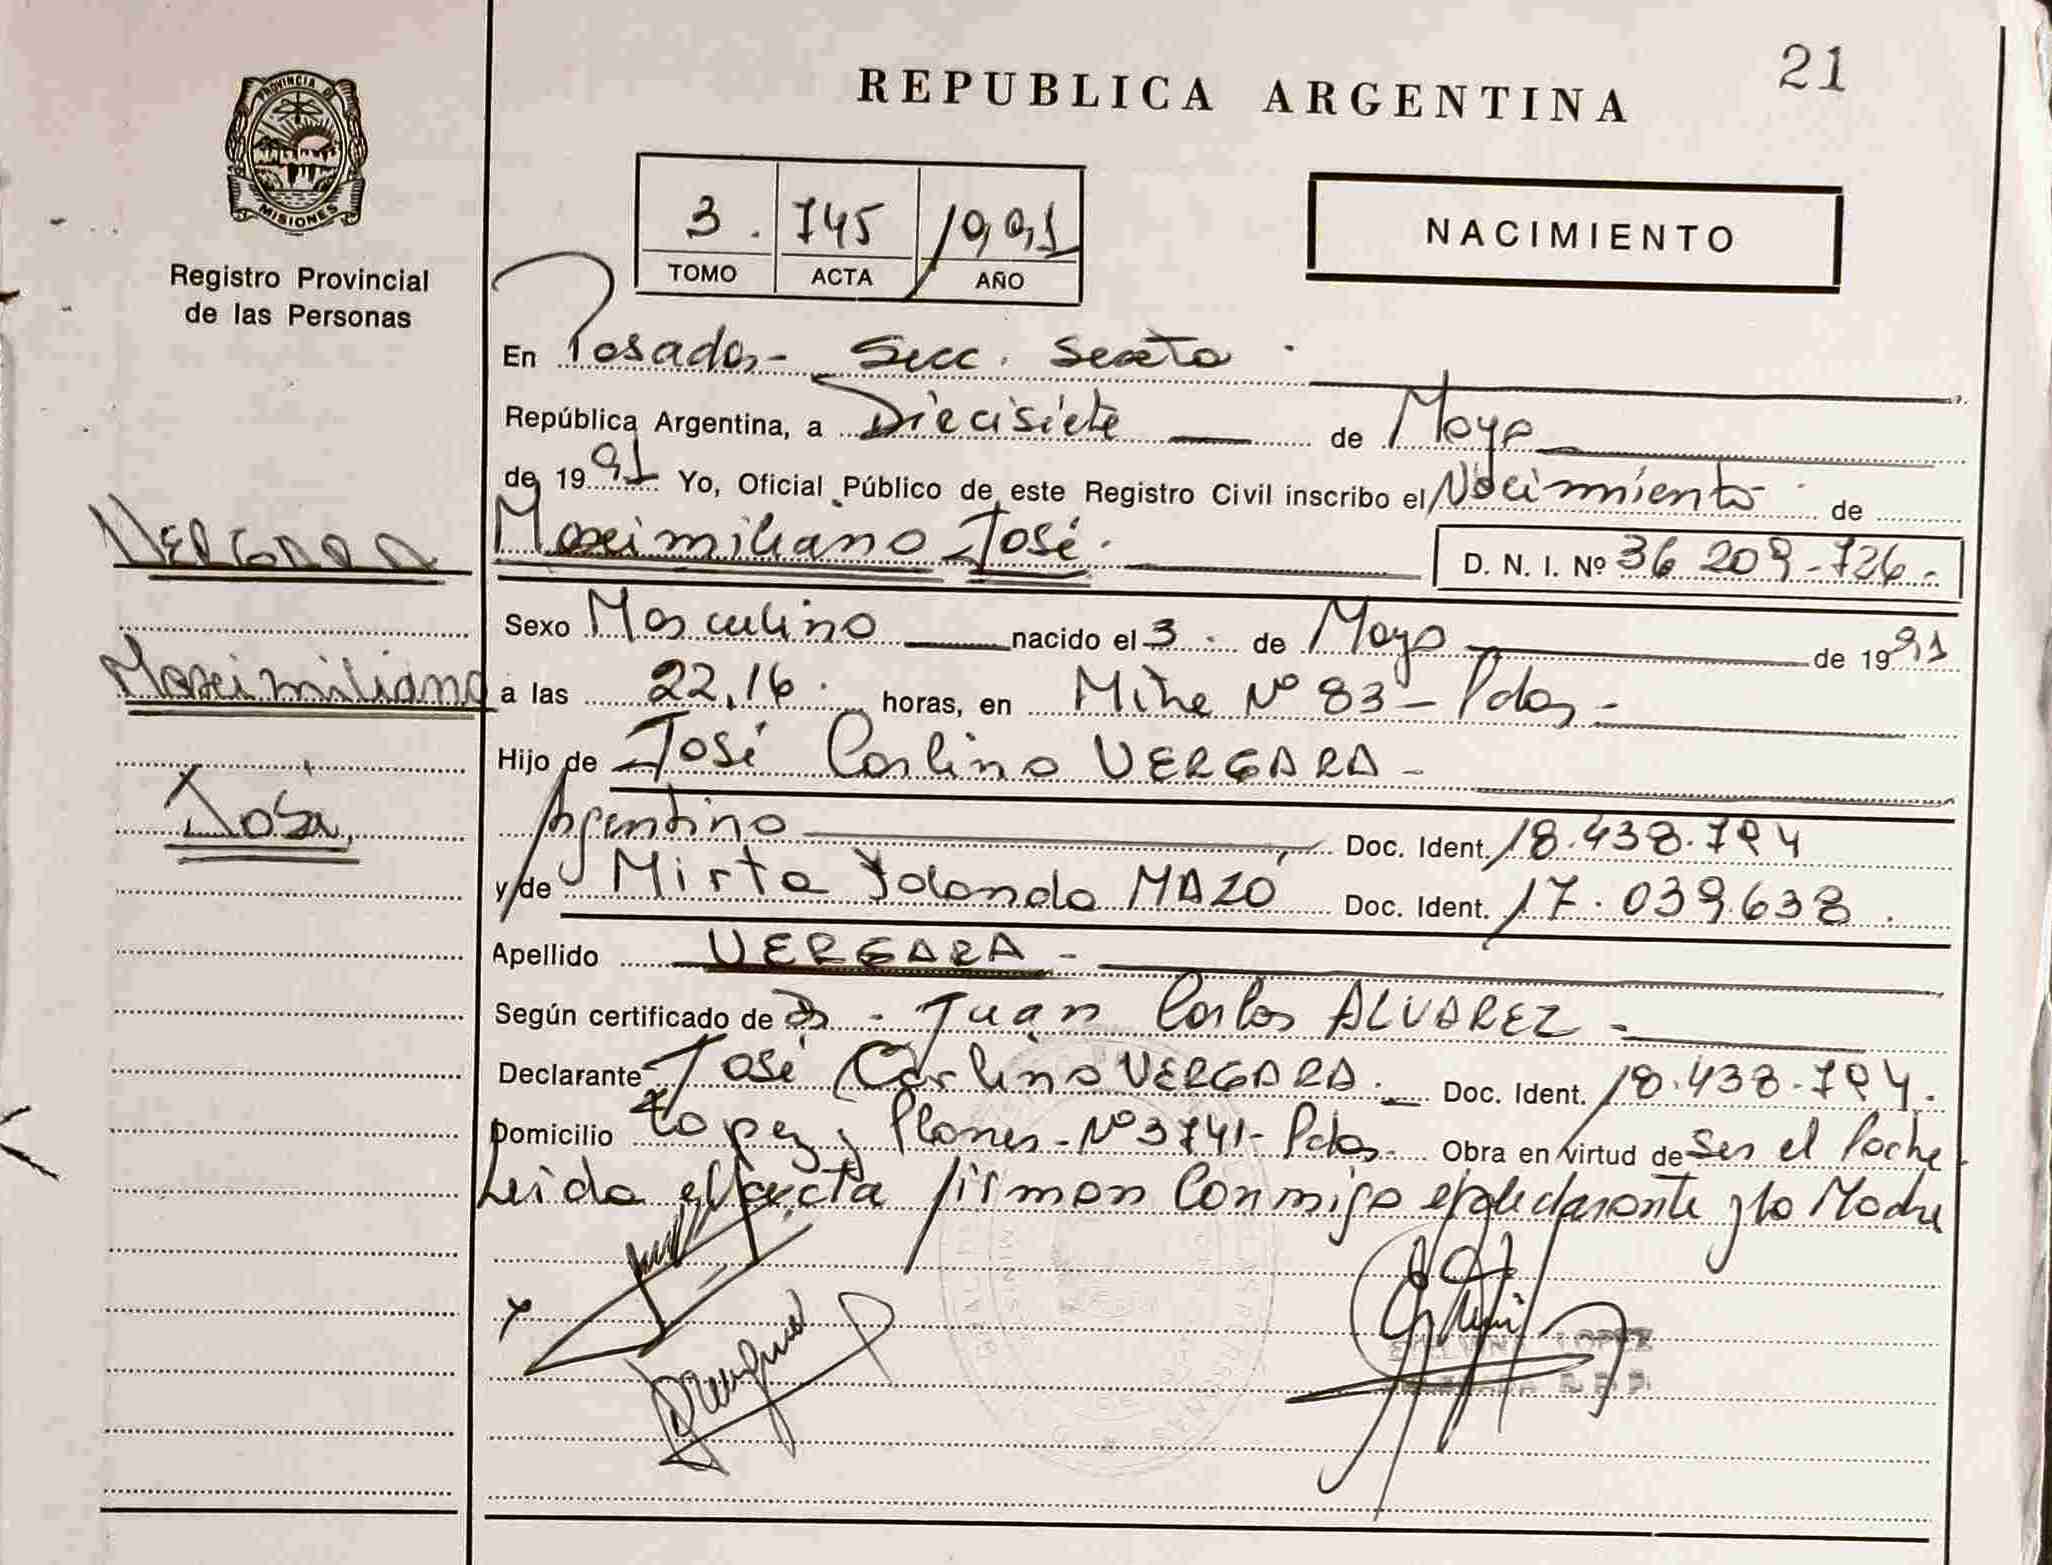 21
REPUBLICA ARGENTINA
PROVINCIA DE
MISIONES
Registro Provincial
de las Personas
3. 745 1991
TOMO ACTA AÑO
NACIMIENTO
En Posadas - Secc. Sexta.
República Argentina, a Diecisiete de Mayo
de 1991 Yo, Oficial Público de este Registro Civil inscribo el Nacimiento de
VERGARA
Maximiliano José.
D. N. I. Nº 36 209-726-
Sexo Masculino nacido el 3. de Mayo de 1991
Maximiliano
a las 22,16. horas, en Mitre Nº 83 - Pdas -
Hijo de José Carlino VERGARA -
José
Argentino Doc. Ident. 18.438.794
y de Mirta Yolanda MAZÓ Doc. Ident. 17.039.638.
Apellido VERGARA -
Según certificado de Dr. - Juan Carlos ALVAREZ -
Declarante José Carlino VERGARA. Doc. Ident. 18.438.794.
Domicilio Lopez y Planes - Nº 3741 - Pdas. Obra en virtud de ser el Padre
Leida el acta firman conmigo el declarante y la Madre
LOPEZ